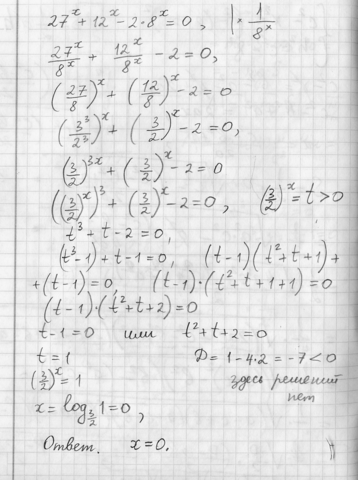 27^x + 12^x - 2·8^x = 0, | · 1/8^x
27^x/8^x + 12^x/8^x - 2 = 0,
(27/8)^x + (12/8)^x - 2 = 0
(3^3/2^3)^x + (3/2)^x - 2 = 0,
(3/2)^{3x} + (3/2)^x - 2 = 0
((3/2)^x)^3 + (3/2)^x - 2 = 0, (3/2)^x = t > 0
t^3 + t - 2 = 0,
(t^3 - 1) + t - 1 = 0, (t-1)(t^2 + t + 1) +
+ (t-1) = 0, (t-1)·(t^2 + t + 1 + 1) = 0
(t-1)·(t^2 + t + 2) = 0
t - 1 = 0 или t^2 + t + 2 = 0
t = 1 D = 1 - 4·2 = -7 < 0
(3/2)^x = 1 здесь решений
нет
x = log_{3/2} 1 = 0,
Ответ. x = 0.